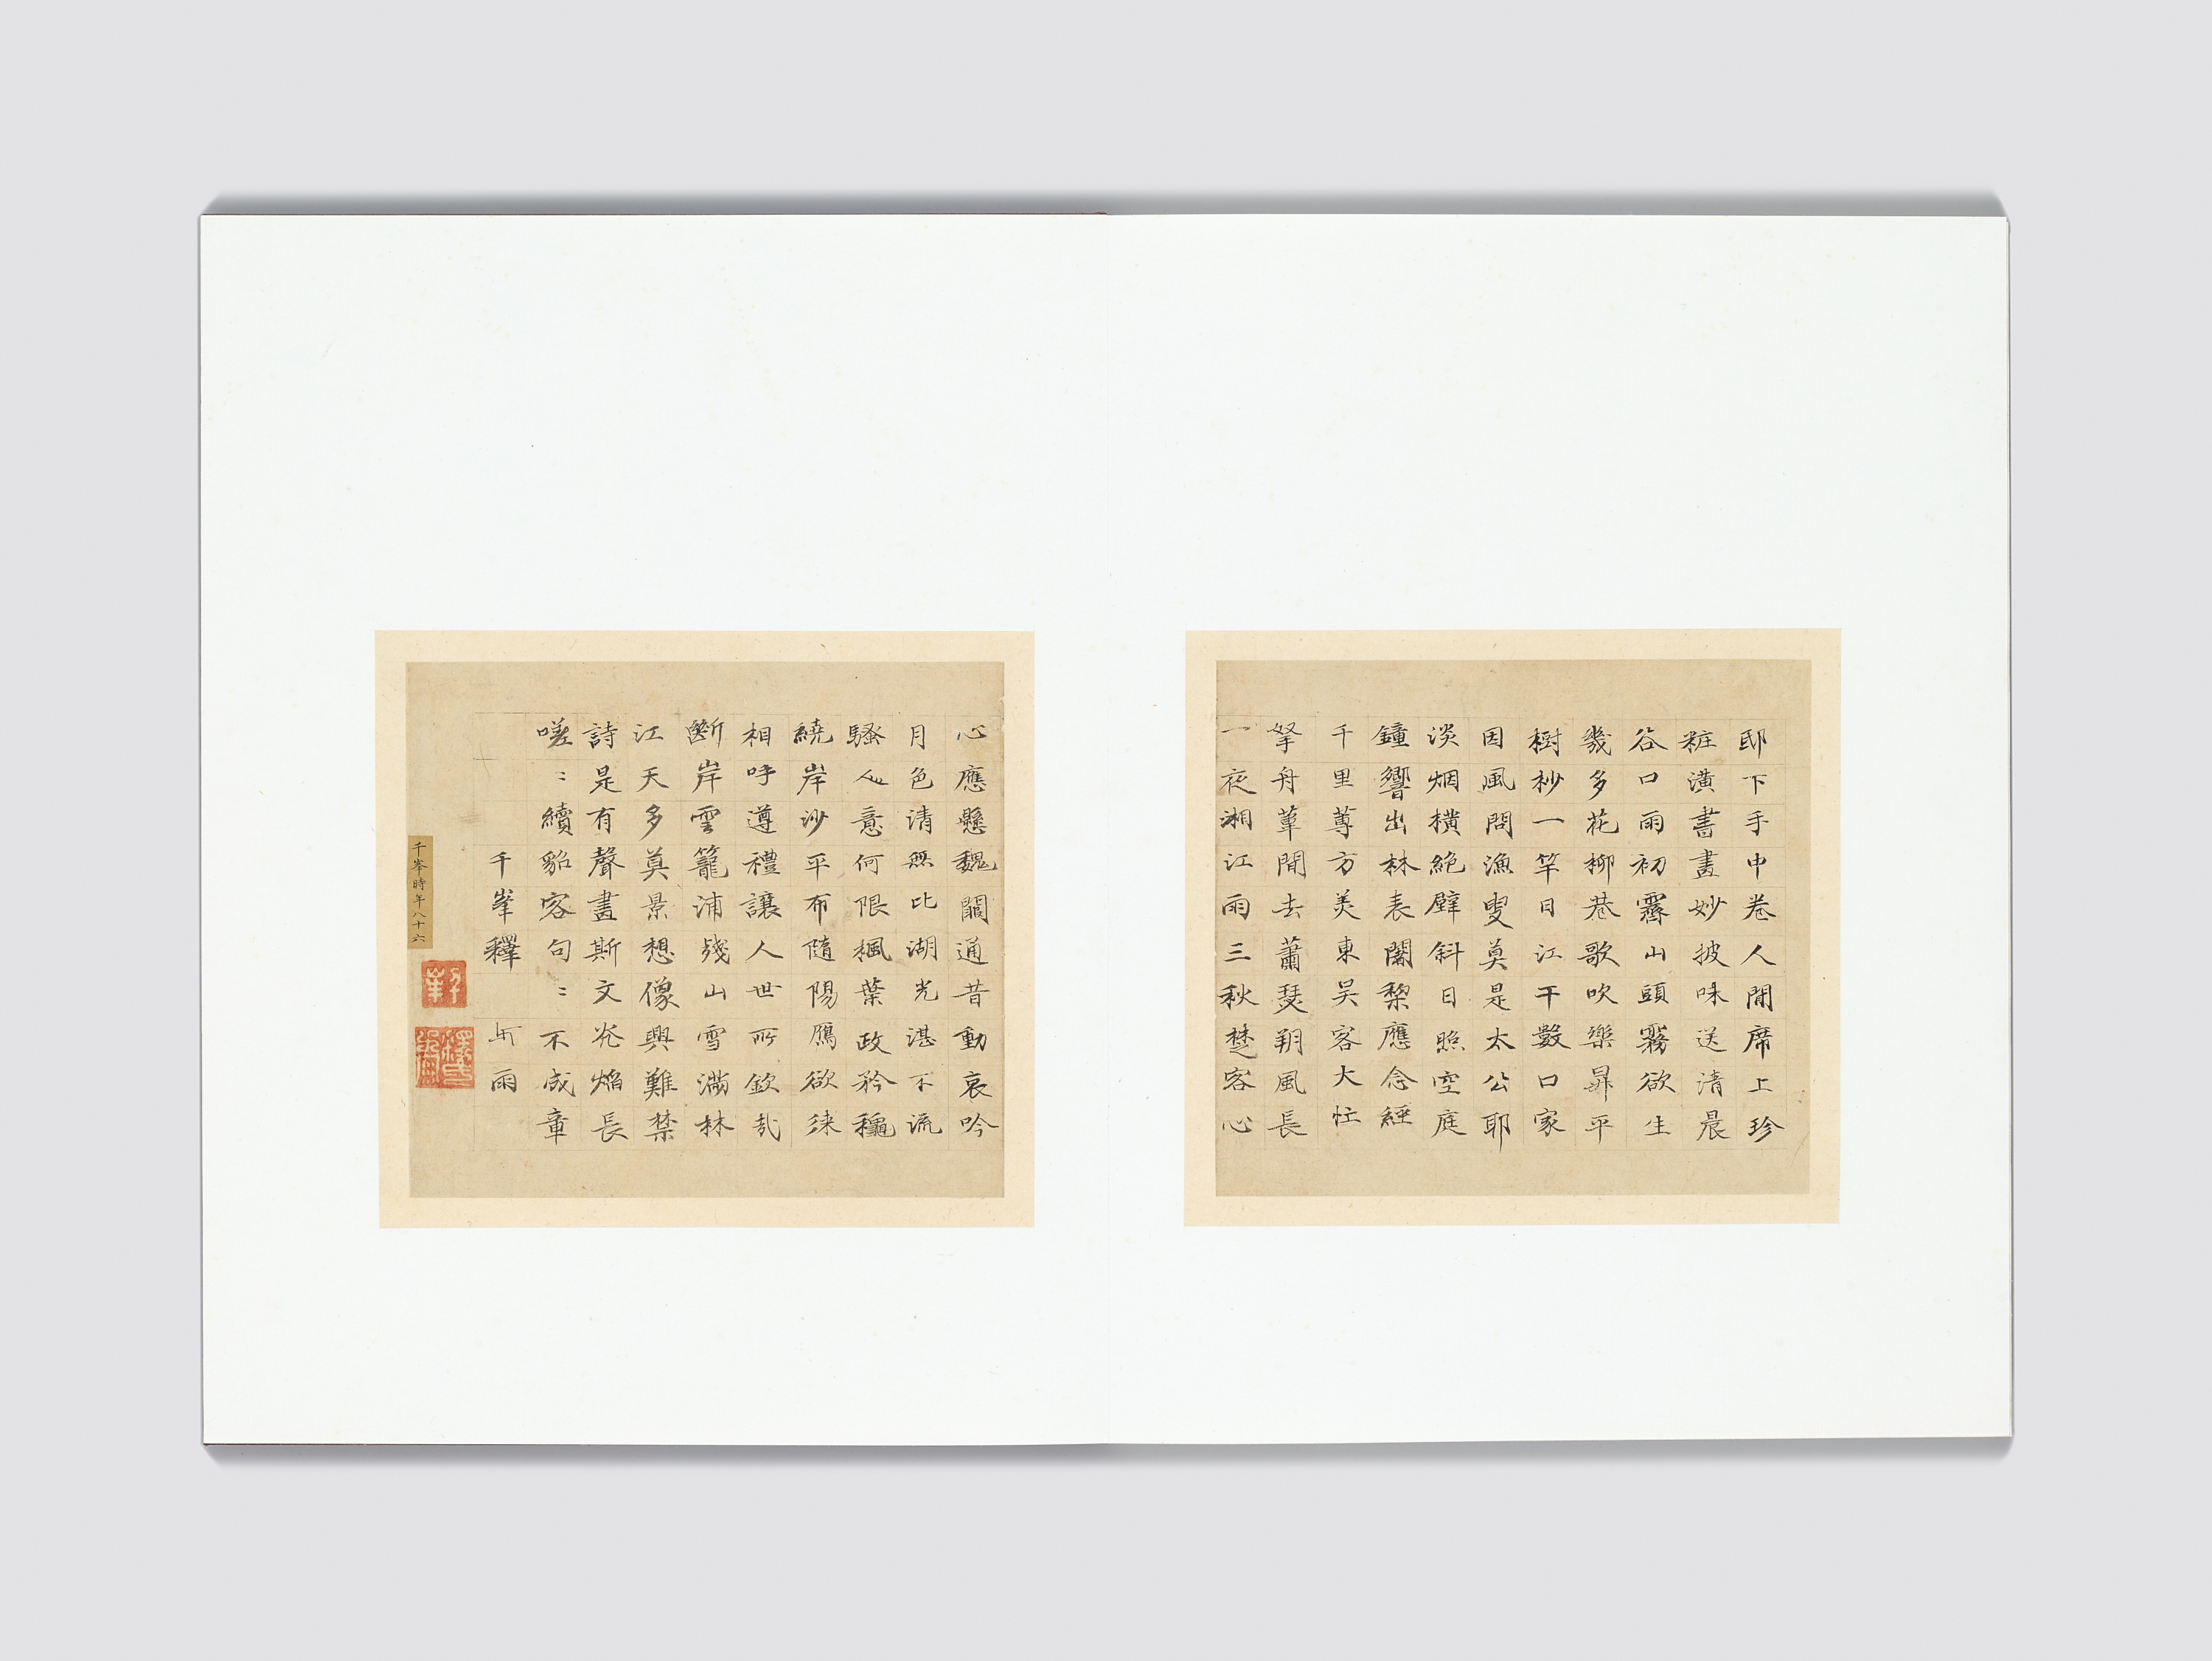 邸下手中卷人間席上珍
粧潢書畫妙披味送清晨
谷口雨初霽山頭霧欲生
幾多花柳巷歌吹樂昇平
樹杪一竿日江干數口家
因風問漁叟莫是太公耶
淡烟橫絕壁斜日照空庭
鐘響出林表闍梨應念經
千里蓴方美東吳客大忙
拏舟葦間去蕭瑟朔風長
一夜湘江雨三秋楚客心
心應懸魏闕通昔動哀吟
月色清無比湖光湛不流
騷人意何限楓葉政矜穐
繞岸沙平布隨陽鴈欲来
相呼遵禮讓人世所欽哉
斷岸雲籠浦殘山雪滿林
江天多莫景想像興難禁
詩是有聲畫斯文光焰長
嗟〻續貂客句〻不成章
千峯釋 雨
千峯時年八十六
千峯